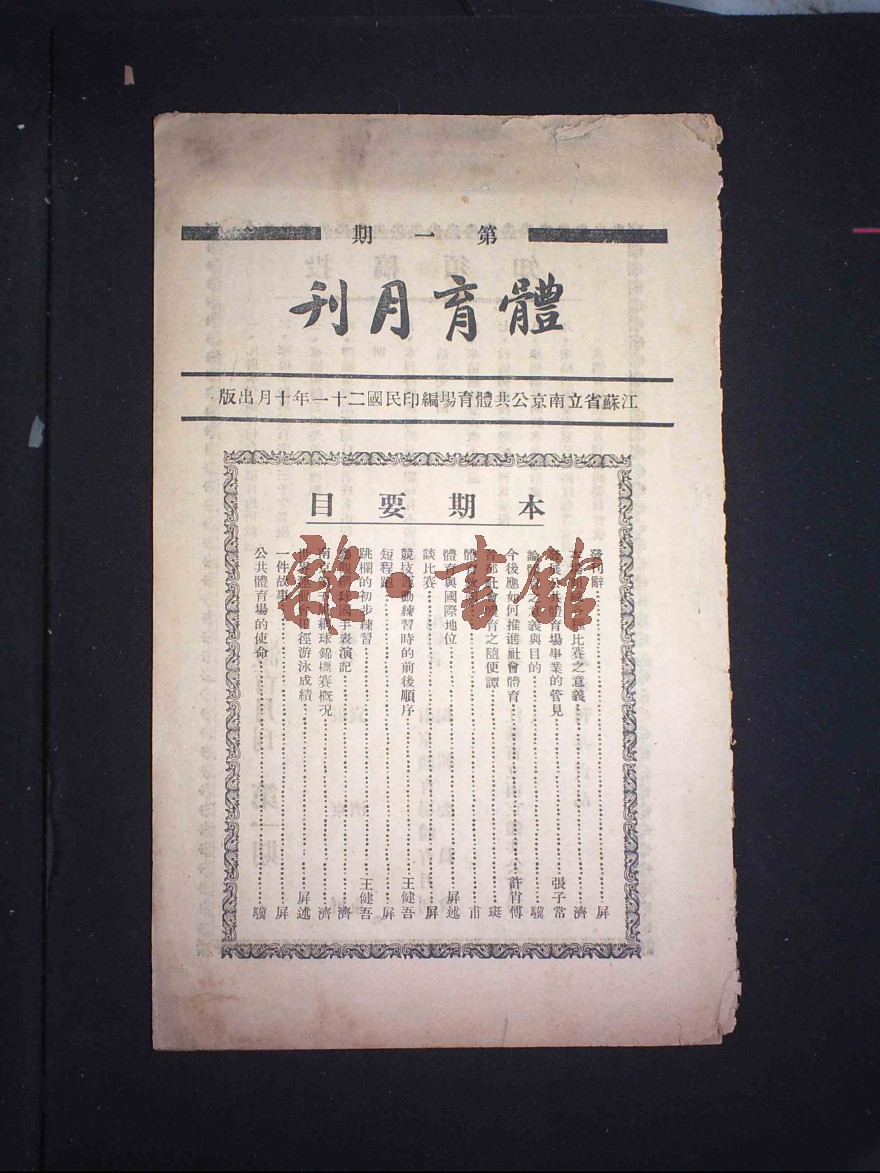 第一期
體育月刊
江蘇省立南京公共體育場編印民國二十一年十月出版
本期要目
發刊辭 屏
比賽之意義 濟
公共體育場事業的管見 張子常
論 意義與目的 驥
今後應如何推進社會體育 許肖傅
社會體育之隨便譚 斑
體 甫
體育與國際地位 屏述
談比賽 屏
競技運動練習時的前後順序 王健吾
短程跑 屏
跳欄的初步練習 王健吾
網球國手表演記 濟
南京 網球錦標賽概况 濟
世界 田徑游泳成績 屏述
一件故事 屏
公共體育場的使命 驥
雜·書館